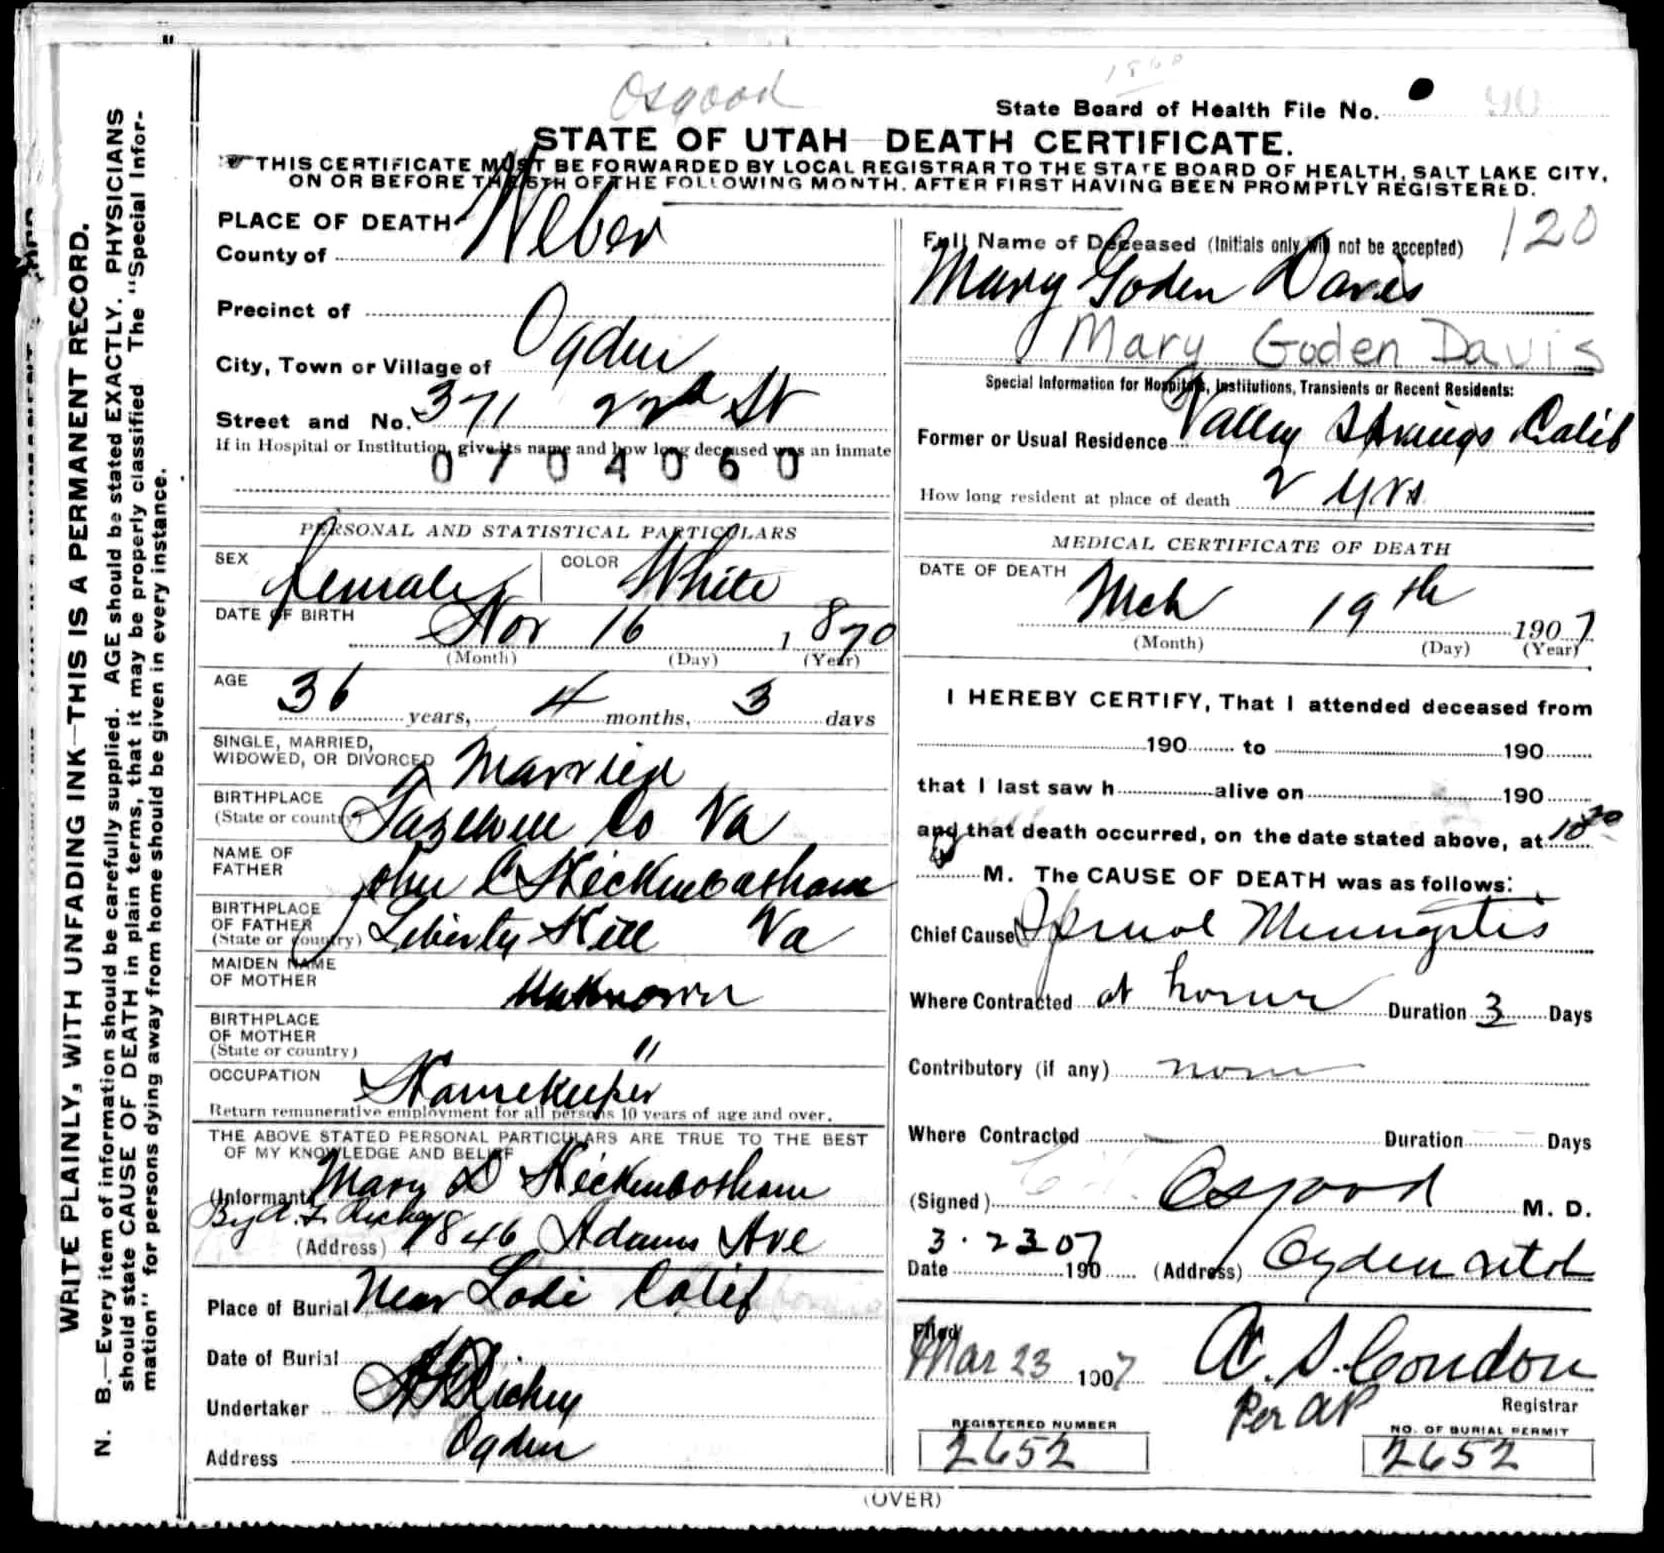 Osgood
1960
State Board of Health File No. 90
STATE OF UTAH—DEATH CERTIFICATE.
THIS CERTIFICATE MUST BE FORWARDED BY LOCAL REGISTRAR TO THE STATE BOARD OF HEALTH, SALT LAKE CITY,
ON OR BEFORE THE 5TH OF THE FOLLOWING MONTH, AFTER FIRST HAVING BEEN PROMPTLY REGISTERED.
WRITE PLAINLY, WITH UNFADING INK—THIS IS A PERMANENT RECORD.
N. B.—Every item of information should be carefully supplied. AGE should be stated EXACTLY. PHYSICIANS
should state CAUSE OF DEATH in plain terms, that it may be properly classified. The "Special Infor-
mation" for persons dying away from home should be given in every instance.
PLACE OF DEATH
County of Weber
Precinct of
City, Town or Village of Ogden
Street and No. 371 22nd St
If in Hospital or Institution, give its name and how long deceased was an inmate
0704060
PERSONAL AND STATISTICAL PARTICULARS
SEX female COLOR White
DATE OF BIRTH Nov 16 1870
(Month) (Day) (Year)
AGE
36 years, 4 months, 3 days
SINGLE, MARRIED,
WIDOWED, OR DIVORCED Married
BIRTHPLACE
(State or country) Tazewell Co Va
NAME OF
FATHER John C Hickenbotham
BIRTHPLACE
OF FATHER
(State or country) Liberty Hill Va
MAIDEN NAME
OF MOTHER Unknown
BIRTHPLACE
OF MOTHER
(State or country) "
OCCUPATION Housekeeper
Return remunerative employment for all persons 10 years of age and over.
THE ABOVE STATED PERSONAL PARTICULARS ARE TRUE TO THE BEST
OF MY KNOWLEDGE AND BELIEF
(Informant) Mary D Hickenbotham
By A. F. Richey
(Address) 1846 Adams Ave
Place of Burial Near Lodi Calif
Date of Burial
Undertaker Richey
Address Ogden
120
Full Name of Deceased (Initials only will not be accepted)
Mary Goden Davis
Mary Goden Davis
Special Information for Hospitals, Institutions, Transients or Recent Residents:
Former or Usual Residence Valley Springs Calif
How long resident at place of death 2 yrs
MEDICAL CERTIFICATE OF DEATH
DATE OF DEATH
Mch 19th 1907
(Month) (Day) (Year)
I HEREBY CERTIFY, That I attended deceased from
190 to 190
that I last saw h alive on 190
and that death occurred, on the date stated above, at 10 30
M. The CAUSE OF DEATH was as follows:
Chief Cause Spinal Meningitis
Where Contracted at home Duration 3 Days
Contributory (if any) none
Where Contracted Duration Days
(Signed) Osgood M. D.
3. 23 07
Date 190 (Address) Ogden Utah
Filed
Mar 23 1907 A. S. Condon
Per AP Registrar
REGISTERED NUMBER
2652
NO. OF BURIAL PERMIT
2652
(OVER)